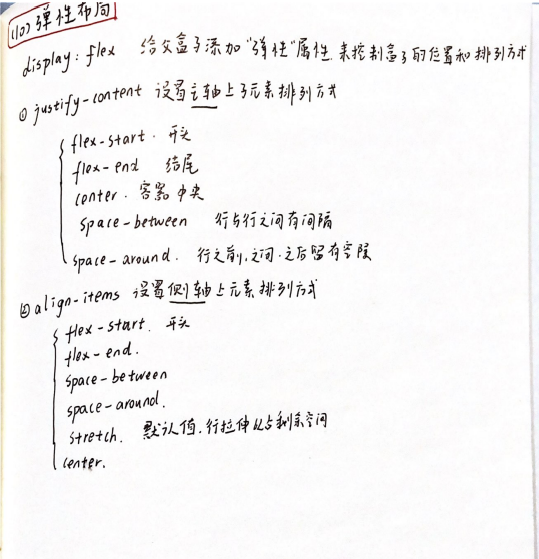 (10) 弹性布局
display: flex 给父盒子添加"弹性"属性.来控制盒子的位置和排列方式
① justify-content 设置主轴上子元素排列方式
flex-start. 开头
flex-end 结尾
center. 容器中央
space-between 行与行之间有间隔
space-around. 行之前,之间.之后留有空隙
② align-items 设置侧轴上元素排列方式
flex-start. 开头
flex-end.
space-between
space-around.
stretch. 默认值.行拉伸以占剩余空间
center.